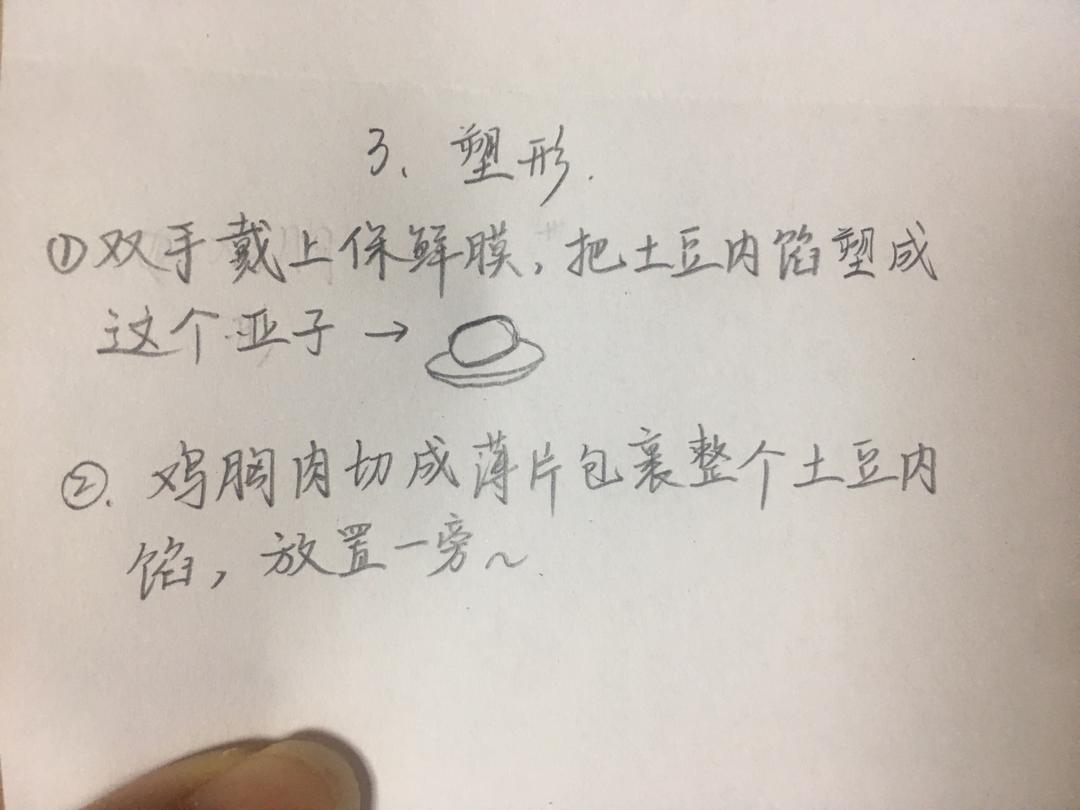 3、塑形.
①双手戴上保鲜膜,把土豆内馅塑成
这个亚子→
②.鸡胸肉切成薄片包裹整个土豆内
馅,放置一旁~